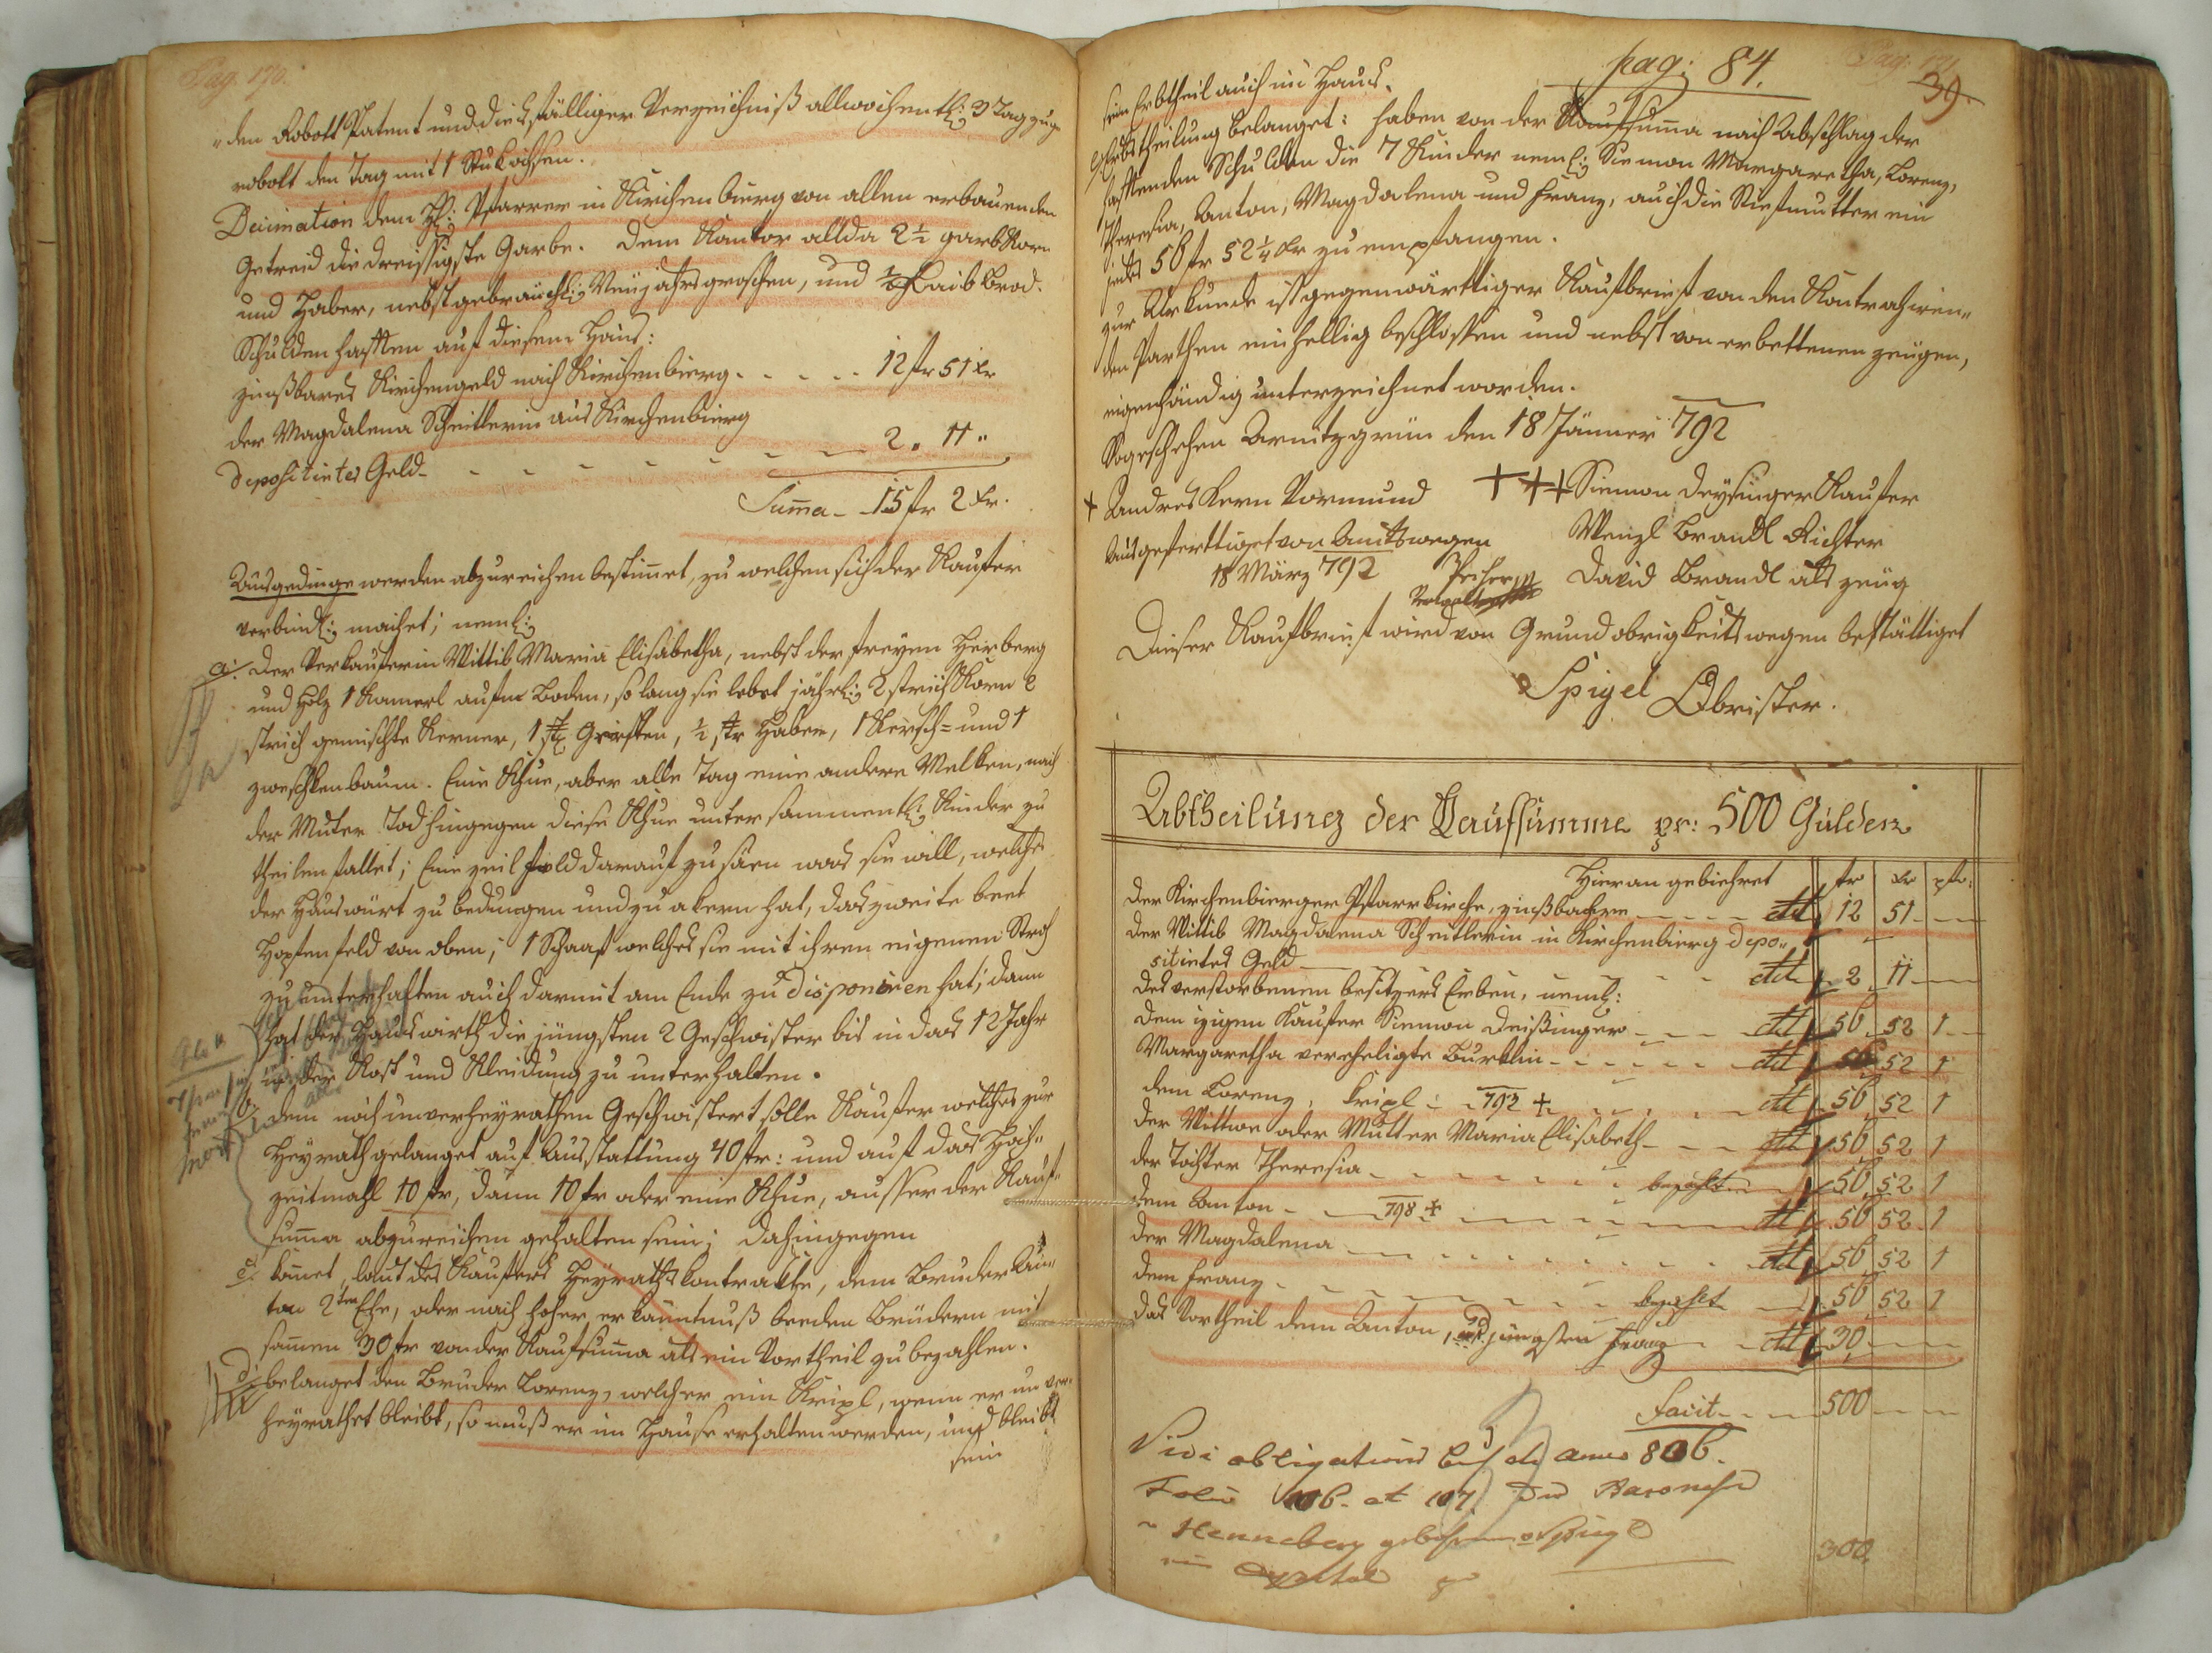 Pag. 170.
den Robott Patent und dießfälliger Verzeichniß allwochentl: 3 Tag zu
robott den Tag mit 1 Stuk ochsen.
Decimation dem H: Pfarrer in Kirchenbierg von allen erbauenden
Getreid die dreissigste Garbe. Dem Kantor allda 2 1/2 garb Korn
und Haber, nebst gebräuchl: Neujahrsgroschen, und 1/2 Laib Brod.
Schulden haften auf diesem Haus:
zinßbares Kirchengeld nach Kirchenbierg. - - - - 12 fr 51 xr
der Magdalena Scheitlerin aus Kirchenbierg
depositirtes Geld - - - - - - - 2 " 11 "
Suma - 15 fr 2 xr.
Ausgedinge werden abzureichen bestimet, zu welchen sich der Kaufer
verbindl: machet; neml:
a: Der Verkauferin Wittib Maria Elisabetha, nebst der freyen Herberg
und Holz 1 Kamerl aufm Boden, so lang sie lebet jährl: 2 strich Korn 2
strich gemischte Kerner, 1 str Gersten, 1/2 str Haber, 1 Kersch= und 1
zweschkenbaum. Eine Khue, aber alle Tag eine andere Melken, nach
der Muter Tod hingegen diese Khue unter sammentl: Kinder zu
theilen fallet; Eine zeil feld darauf zu säen was sie will, welches
der Hauswürt zu bedungen und zu akern hat, das zweite beet
Hopfenfeld von oben; 1 Schaaf welches sie mit ihren eigenen Stroh
zu unterhalten auch darmit am Ende zu disponiren hat; dann
hat der Hauswirth die jüngsten 2 Geschwister bis in das 12 Jahr
in der Kost und Kleidung zu unterhalten.
b: dem noch unverheyrathen Geschwistert solle Kaufer welches zur
Heyrath gelanget auf Ausstattung 40 fr: und auf das Hoch=
zeitmahl 10 fr, dann 10 fr oder eine Khue, ausser der Kauf=
suma abzureichen gehalten sein; dahingegen
c: komet, laut des Kaufers Heyrathskontrakte, dem Bruder An=
ton 2ten Ehe, oder nach hoher erkanntnuß beeden Brüdern mit
samen 30 fr von der Kaufsuma als ein Vortheil zu bezahlen.
d: belanget den Bruder Lorenz, welcher ein Kripl, wenn er un ver=
heyrathet bleibt, so muß er im Hause erhalten werden, und bleibt
sein
pag: 84.
39.
sein Erbtheil auch im Haus.
Erbstheilung belanget: haben von der Kaufsuma nach Abschlag der
haftenden Schulden die 7 Kinder neml: Siemon Margaretha, Lorenz,
Theresia, Anton, Magdalena und Franz, auch die Stiefmutter ein
jedes 56 fr 52 1/4 xr zu empfangen.
zur Urkunde ist gegenwärtiger Kaufbrief von den Kontrahiren=
den Parthen einhellig beschlossen und nebst von erbettenen zeugen,
eigenhändig unterzeichnet worden.
So geschehen Arnitzgrün den 18 Jänner 792
+ Andres Kern Vormund +++ Siemon Deysinger Kaufer
Ausgefertiget von Amtswegen Wenzl Brandl Richter
18 März 792 David Brandl als zeug
Dieser Kaufbrief wird von Grundobrigkeits wegen bestättiget
Spigel Obrister.
Abtheilung der Kaufsumme pr: 500 Gulden
Hieran gebiehret fr xr pfe:
der Kirchenbierger Pfarrkirche, zinßbahre - - - - dtt 12 51 -
der Wittib Magdalena Scheitlerin in Kirchenbierg depo=
sitirtes Geld - dtt 2 11 -
des verstorbenen besitzers Erben, neml:
dem izigen Kaufer Siemon Deißinger - - - dtt 56 52 1
Margaretha vereheligte Burklin - - - - - dtt 56 52 1
dem Lorenz, Kripl - 792 + - - - - dtt 56 52 1
der Wittwe oder Mutter Maria Elisabeth - - - dtt 56 52 1
der Tochter Theresia - - - - - - bezahlt - 56 52 1
dem Anton - - 798 + - - - - dtt 56 52 1
der Magdalena - - - - - - - - dtt 56 52 1
dem Franz - - - - - - - bezahlt - 56 52 1
das Vortheil dem Anton, und jüngsten Franz - dtt 30 - -
Facit - - - 500 - -
Vide obligations Buch de anno 806.
Folio 106. et 107. Die Baronesse
v Henneberg gebohrne v Spiegl
ein Capital 300.